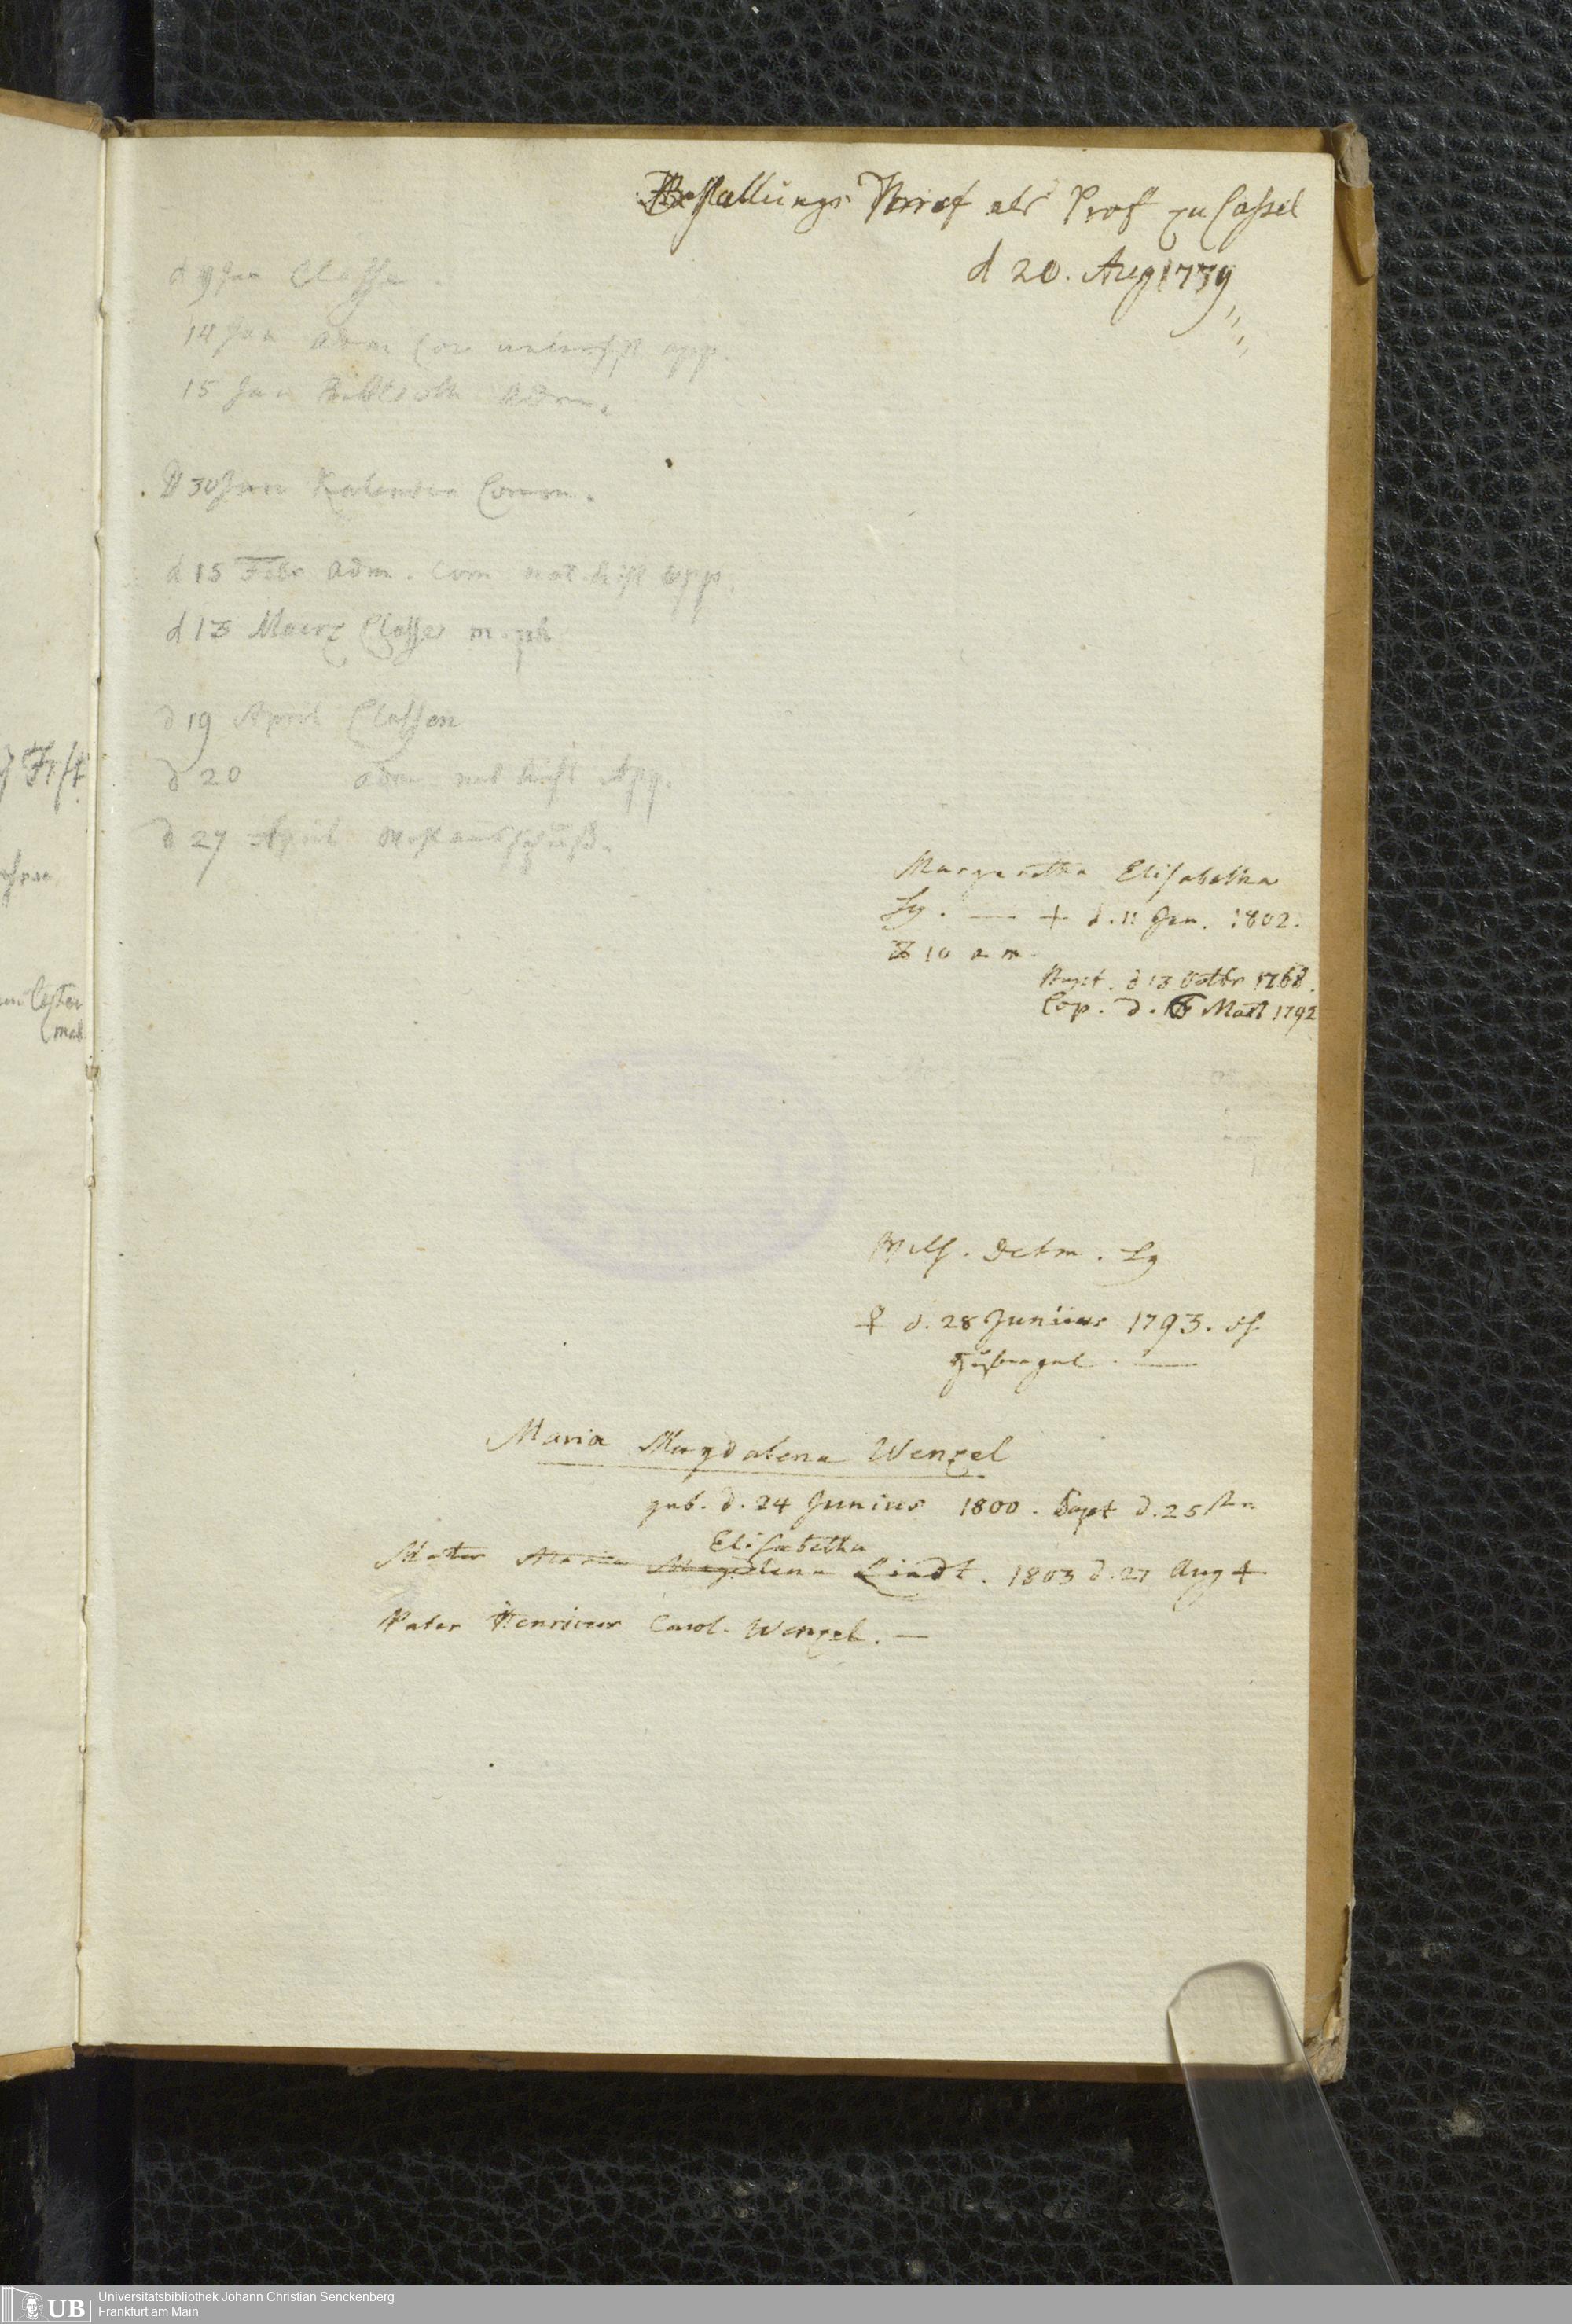 Bestallungs Brief als Prof zu Cassel
d 20. Aug 1779
d 9 Jan Classe
14 Jan adm Com app.
15 Jan adm.
30 Jan Kalender Comm.
d 15 Febr adm. Com nat. hist app.
d 13 Maerz Classe m. ph
d 19 April Classen
d 20 adm nat hist App.
d 27 April
Margaretha Elisabetha
Lg. — + d. 11 Jan. 1802.
10 a m.
Bapt. d 13 Octbr 1768.
Cop. d. Mart 1792
Wilh. Detm. Lg
♀ d. 28 Junius 1793.
Maria Magdalena Wenzel
geb. d. 24 Junius 1800. Bapt d. 25
Elisabetha
Mater Maria Magdalena Lindt. 1803 d. 27 Aug +
Pater Henricus Carol. Wenzel. —
Frst
Universitätsbibliothek Johann Christian Senckenberg
Frankfurt am Main
UB